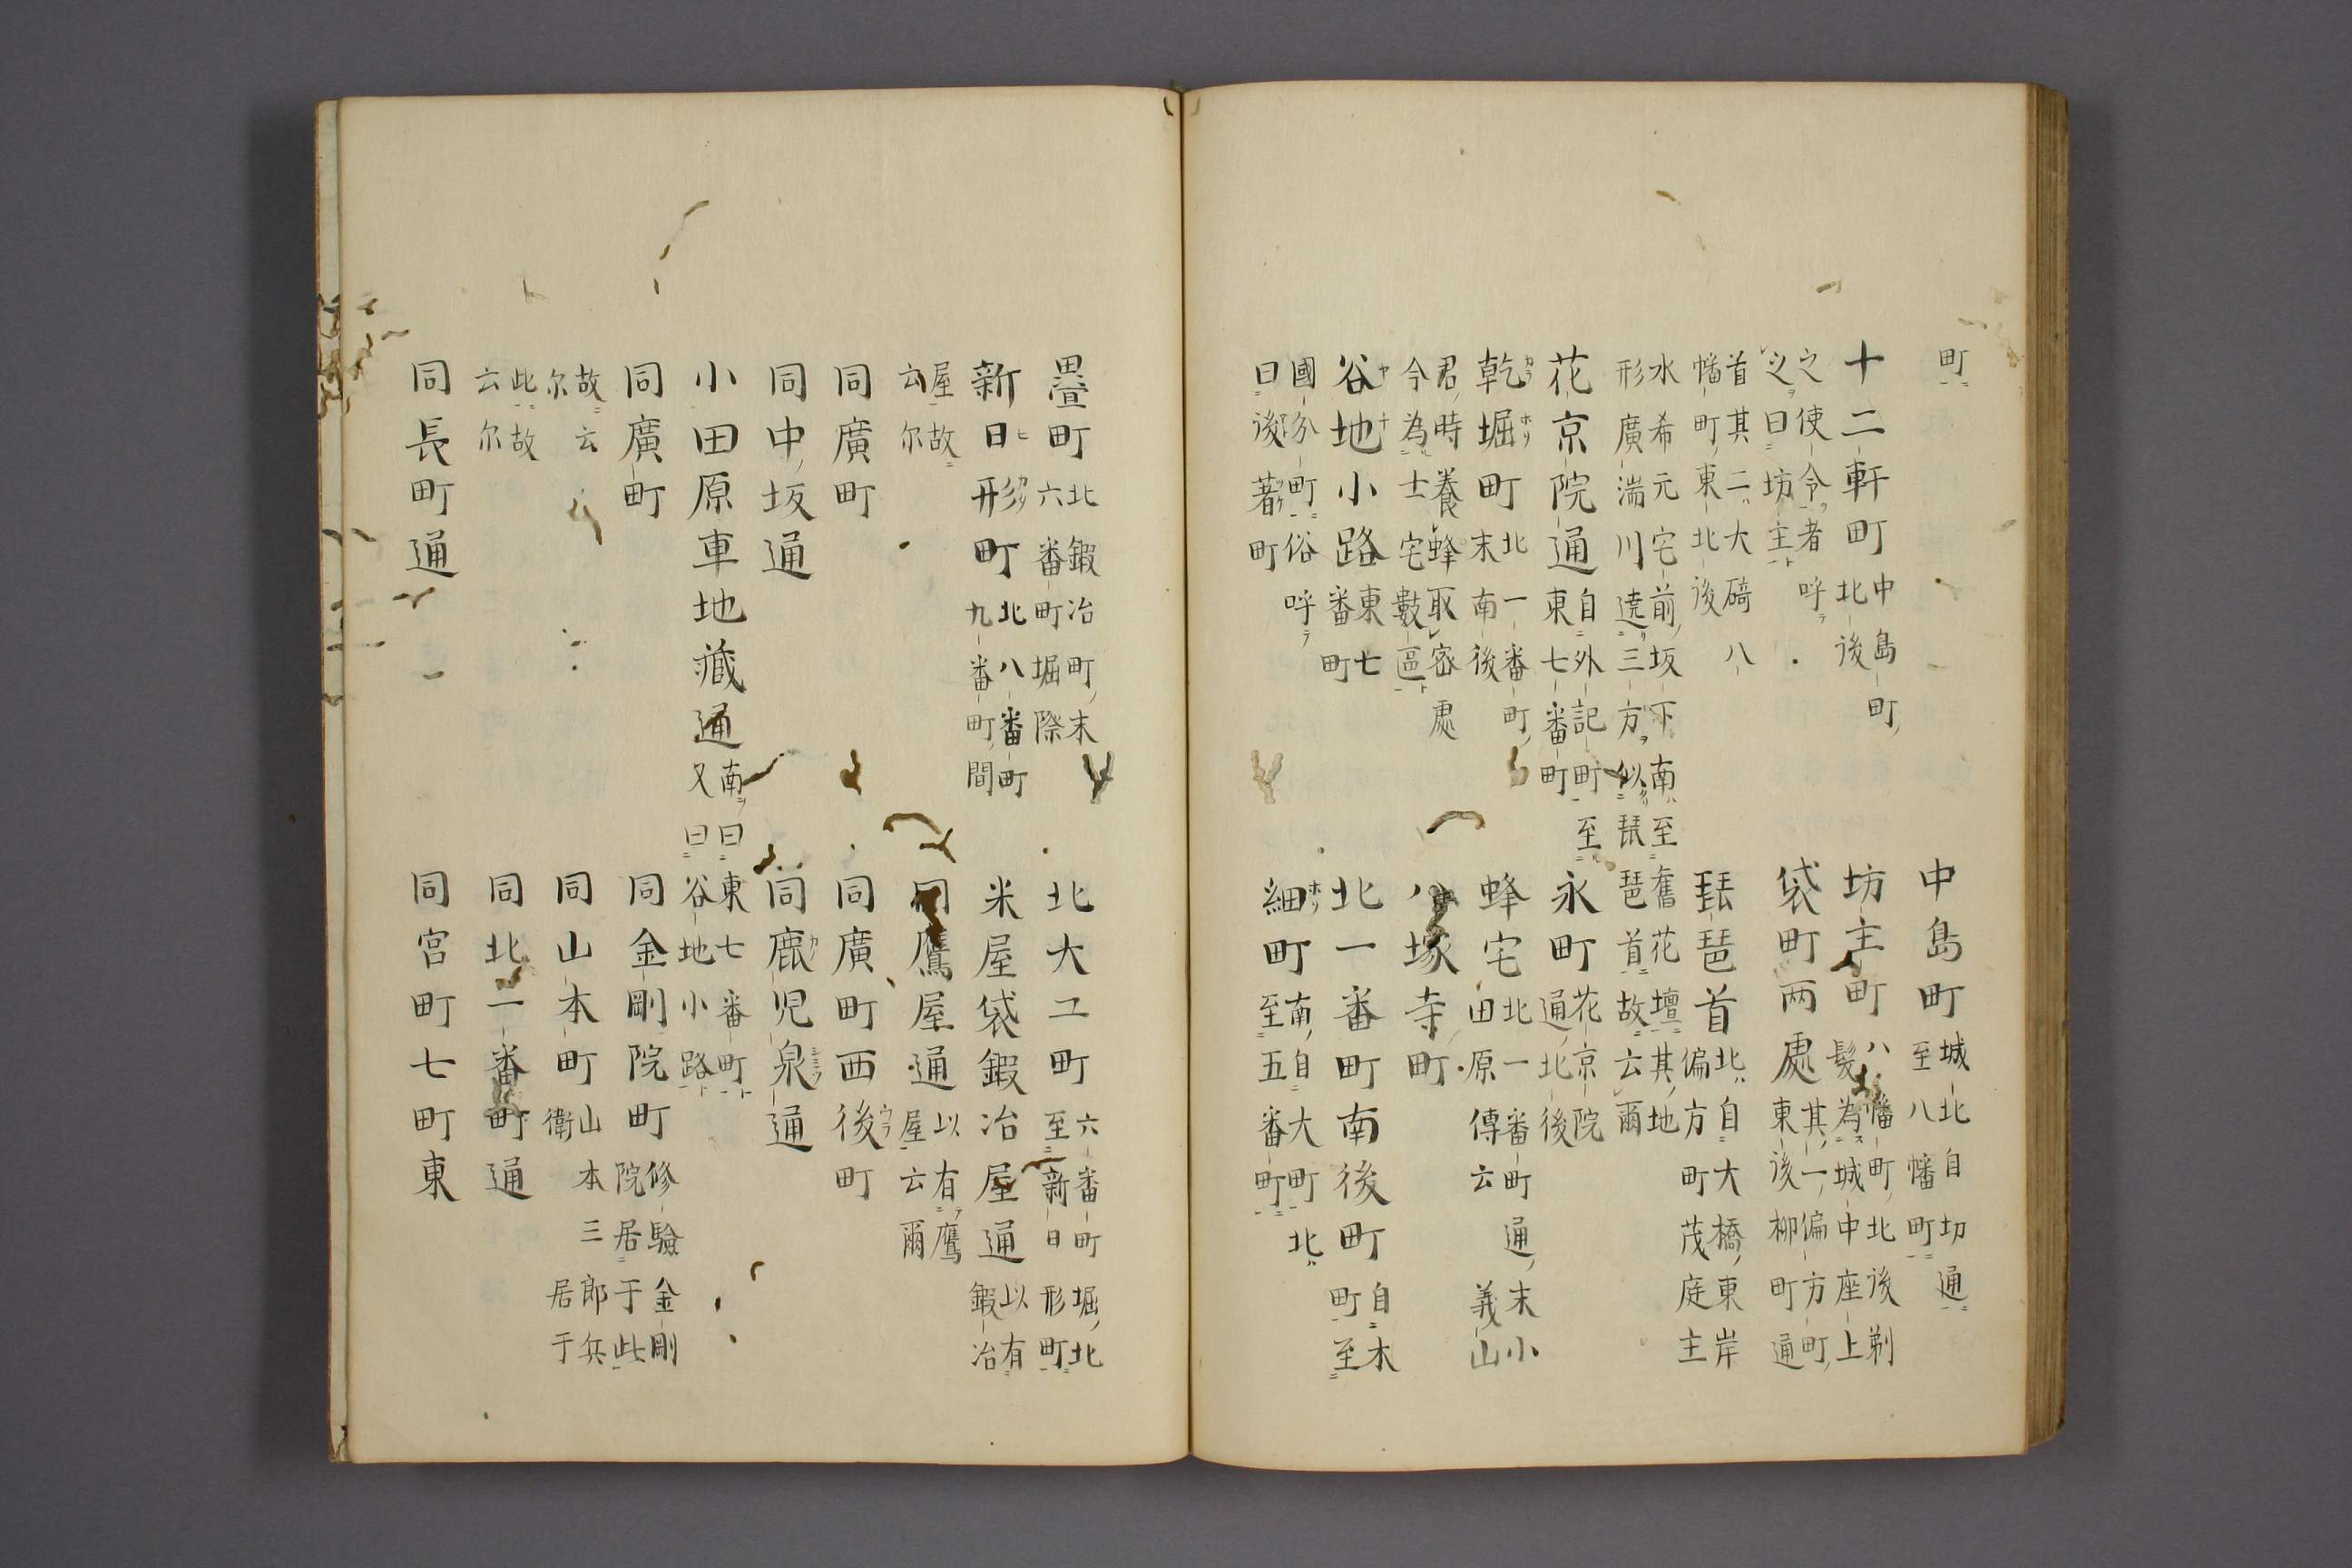 町
中島町 城北自切通
至八幡町
十二軒町 中島町
北後
坊主町 八幡町北後剃
髪為城中座上
之使令者呼
之曰坊主
袋町両處 其一偏方町
東後柳町通
首其二大碕八
幡町東北後
琵琶首 北自大橋東岸
偏方町茂庭主
水希元宅前坂下南至舊花壇其地
形廣湍川遶三方似琵琶首故云爾
花京院通 自外記町至
東七番町
永町 花京院
通北後
乾堀町 北一番町
末南後
蜂宅 北一番町通末小
田原傳云義山
君時養蜂取密處
今為士宅數區
八塚寺町
谷地小路 東七
番町
北一番町南後町 自木
町至
國分町俗呼
曰後著町
細町 南自大町北
至五番町
疊町 北鍜冶町末
六番町堀際
北大工町 六番町堀北
至新日形町
新日形町 北八番町
九番町間
米屋袋鍜冶屋通 以有
鍜冶
屋故
云尔
同鷹屋通 以有鷹
屋云爾
同廣町
同廣町西後町
同中坂通
同鹿児泉通
小田原車地藏通 南曰東七番町
又曰谷地小路
同廣町
同金剛院町 修驗金剛
院居于此
故云
尔
同山本町 山本三郎兵
衛居于
此故
云尔
同北一番町通
同長町通
同宮町七町東